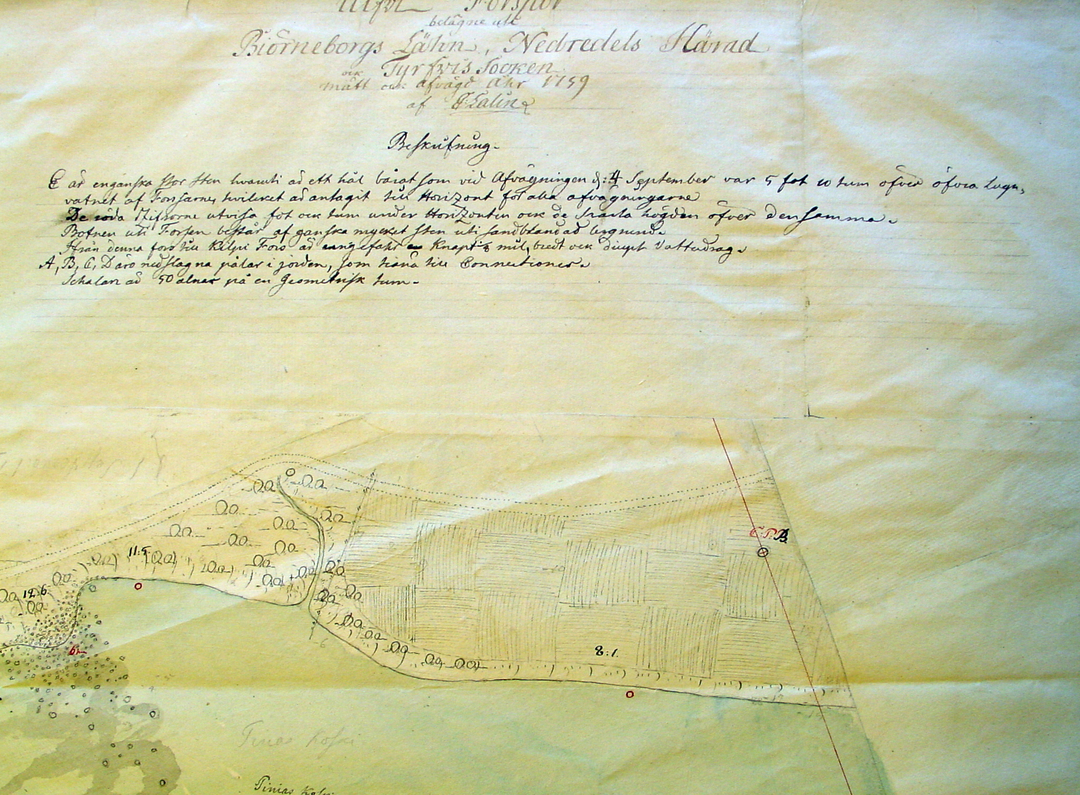 belägne uti
Biörneborgs Lähn, Nedredels Härad
och Tyrfvis Socken
mått och afvägd Åhr 1759
af
Beskrifning.
E är en ganska stor Sten hvaruti är ett hål bårat som vid Afvägningen d: 4 September var 5 fot 10 tum öfver öfvra lugn,
vatnet af Forssarne, hvilcket är antagit till Horizont för alla afvägningarne
De röda Zifrorne utvisa fot och tum under Horizonten och de Svarta högden öfver densamma.
Botnen uti Forsen består af ganska mycket Sten uti Sandblandad
Ifrån denna fors till Kilpi Fors är ungefähr Knapt mil, bredt och diupt Vattudrag.
A, B, C, D äro nedslagna pålar i jorden, som tiena till Connectioner.
Schalan är 50 alnar på en Geometrisk tum.
11:5
12:6
8:1
Koski
Tinias Koski